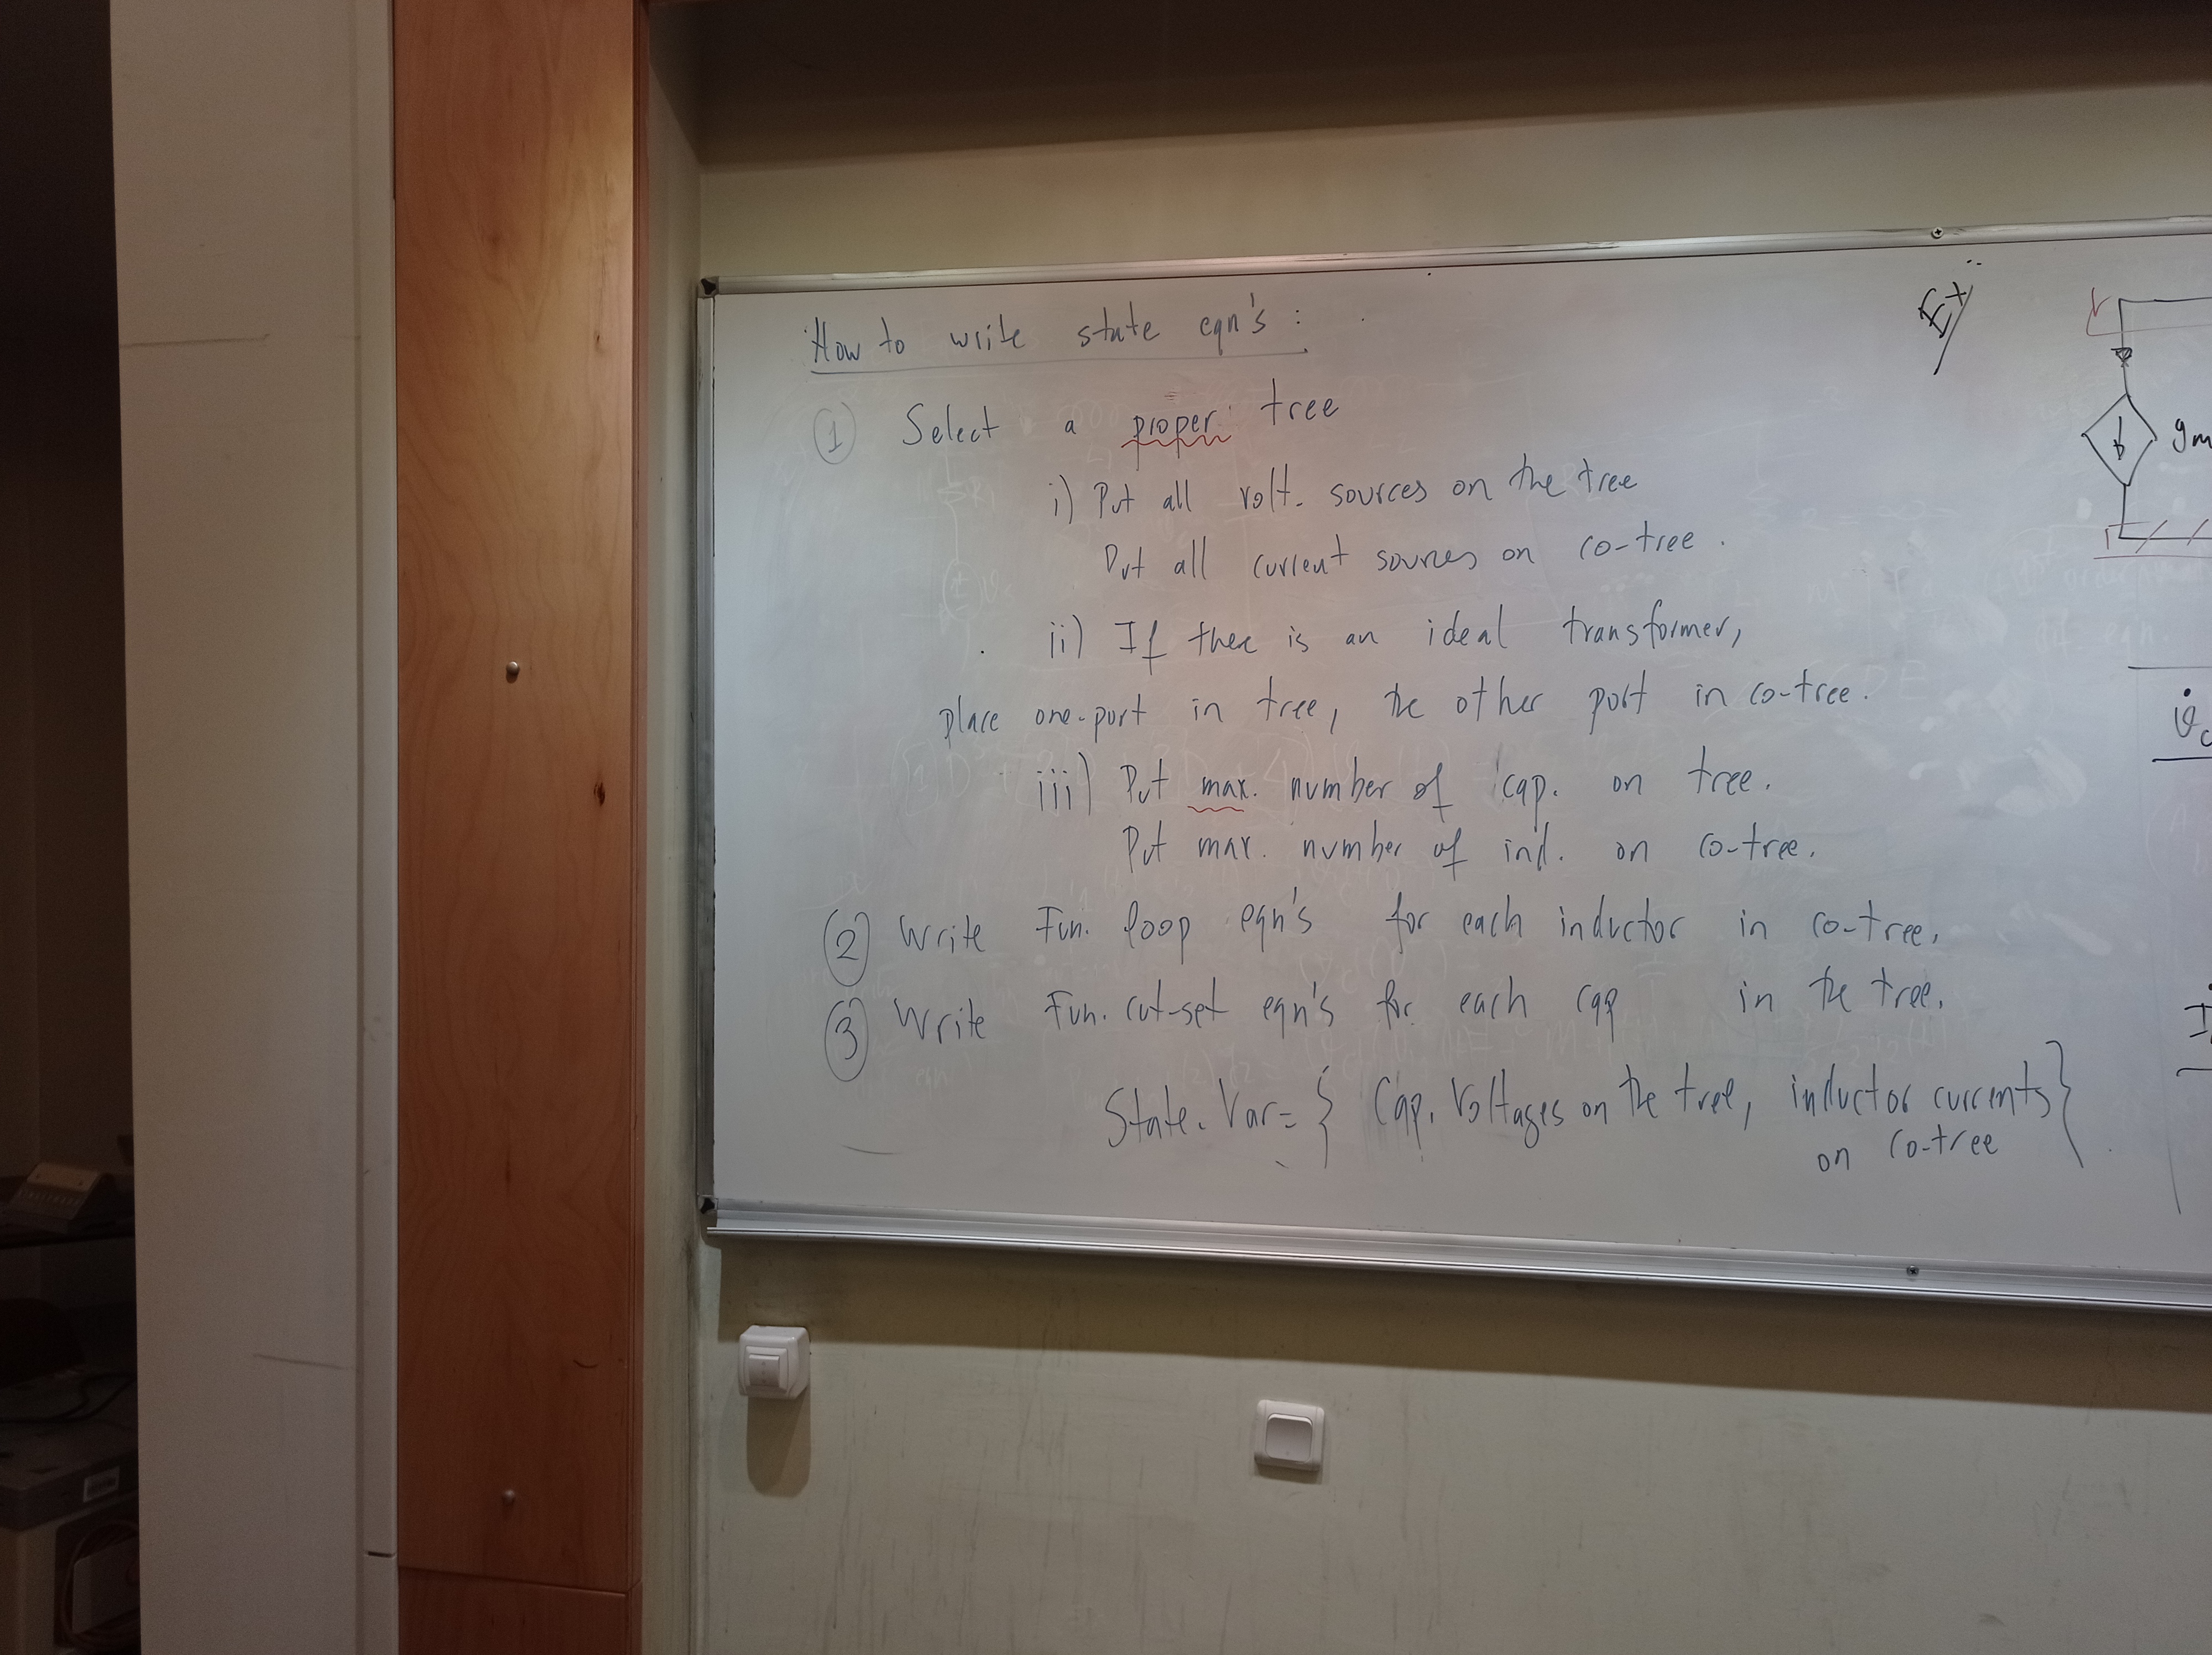 How to write state eqn's :
① Select a proper tree
i) Put all volt. sources on the tree
Put all current sources on co-tree.
ii) If thee is an ideal transformer,
place one-port in tree, the other port in co-tree.
iii) Put max. number of cap. on tree.
Put max. number of ind. on co-tree.
② Write Fun. loop eqn's for each inductor in co-tree.
③ Write Fun. cut-set eqn's for each cap in the tree.
State. Var = { Cap. Voltages on the tree, inductor currents
on co-tree }
Ex
gm